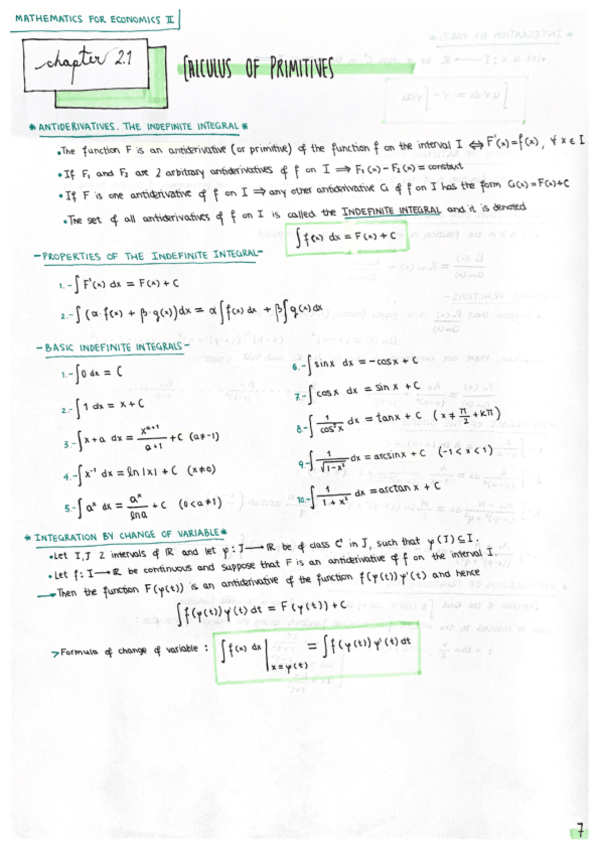 MATHEMATICS FOR ECONOMICS II
chapter 2.1
CALCULUS OF PRIMITIVES
* ANTIDERIVATIVES. THE INDEFINITE INTEGRAL *
• The function F is an antiderivative (or primitive) of the function f on the interval I ⟺ F'(x) = f(x), ∀ x ∈ I
• If F₁ and F₂ are 2 arbitrary antiderivatives of f on I ⟹ F₁(x) - F₂(x) = constant
• If F is one antiderivative of f on I ⟹ any other antiderivative G of f on I has the form G(x) = F(x)+C
• The set of all antiderivatives of f on I is called the INDEFINITE INTEGRAL and it is denoted
∫f(x) dx = F(x) + C
- PROPERTIES OF THE INDEFINITE INTEGRAL -
1.- ∫F'(x) dx = F(x) + C
2.- ∫(α·f(x) + β·g(x)) dx = α∫f(x) dx + β∫g(x) dx
- BASIC INDEFINITE INTEGRALS -
1.- ∫0 dx = C
2.- ∫1 dx = x + C
3.- ∫x+a dx = x^(a+1)/(a+1) + C (a≠-1)
4.- ∫x⁻¹ dx = ln|x| + C (x≠0)
5.- ∫aˣ dx = aˣ/lna + C (0<a≠1)
6.- ∫sinx dx = -cosx + C
7.- ∫cosx dx = sin x + C
8.- ∫1/cos²x dx = tanx + C (x ≠ π/2 + kπ)
9.- ∫1/√(1-x²) dx = arcsinx + C (-1 < x < 1)
10.- ∫1/(1+x²) dx = arctan x + C
* INTEGRATION BY CHANGE OF VARIABLE *
• Let I,J 2 intervals of ℝ and let φ: J ⟶ ℝ be of class C' in J, such that φ(J) ⊆ I.
• Let f: I ⟶ ℝ be continuous and suppose that F is an antiderivative of f on the interval I.
⟶ Then the function F(φ(t)) is an antiderivative of the function f(φ(t))φ'(t) and hence
∫f(φ(t))φ'(t) dt = F(φ(t)) + C
> Formula of change of variable : ∫f(x) dx |x=φ(t) = ∫f(φ(t)) φ'(t) dt
7